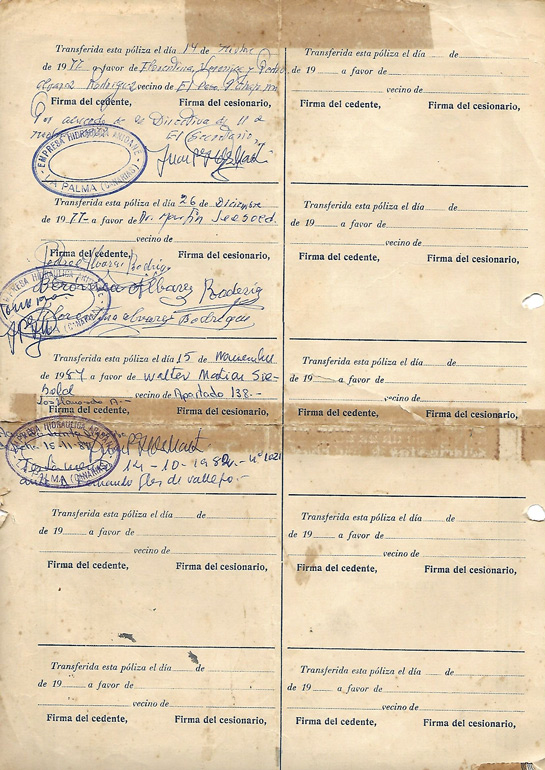 Transferida esta póliza el día 14 de
de 1977 a favor de Florentina, Veronica y Pedro
Alvarez Rodriguez vecino de El Paso
Firma del cedente, Firma del cesionario,
Por acuerdo de la Directiva de 11 de
El Secretario,
EMPRESA HIDRAULICA
LA PALMA (CANARIAS)
Transferida esta póliza el día 26 de Diciembre
de 1977 a favor de Dr. Martin
vecino de
Firma del cedente, Firma del cesionario,
Pedro Alvarez Rodrigu
Veronica Alvarez Roderig
Alvarez Rodriguez
EMPRESA HIDRAULICA
(CANARIAS)
Transferida esta póliza el día 15 de
de 1987 a favor de Walter Matias Sie-
bold vecino de Apartado 138.-
Firma del cedente, Firma del cesionario,
HIDRAULICA
LA PALMA (CANARIAS)
15-11-87
14-10-1982.- nº 1021
Fernando Glez de Vallejo.-
Transferida esta póliza el día de
de 19 a favor de
vecino de
Firma del cedente, Firma del cesionario,
Transferida esta póliza el día de
de 19 a favor de
vecino de
Firma del cedente, Firma del cesionario,
Transferida esta póliza el día de
de 19 a favor de
vecino de
Firma del cedente, Firma del cesionario,
Transferida esta póliza el día de
de 19 a favor de
vecino de
Firma del cedente, Firma del cesionario,
Transferida esta póliza el día de
de 19 a favor de
vecino de
Firma del cedente, Firma del cesionario,
Transferida esta póliza el día de
de 19 a favor de
vecino de
Firma del cedente, Firma del cesionario,
Transferida esta póliza el día de
de 19 a favor de
vecino de
Firma del cedente, Firma del cesionario,